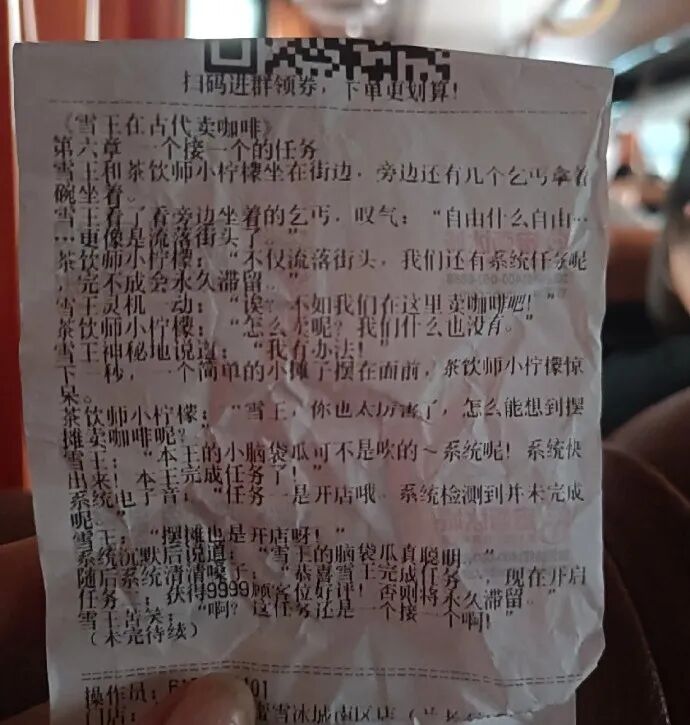 扫码进群领券，下单更划算！
《雪王在古代卖咖啡》
第六章 一个接一个的任务
雪王和茶饮师小柠檬坐在街边，旁边还有几个乞丐拿着
碗坐着。
雪王看了看旁边坐着的乞丐，叹气：“自由什么自由…
…更像是流落街头了。”
茶饮师小柠檬：“不仅流落街头，我们还有系统任务呢
，完不成会永久滞留。”
雪王灵机一动：“诶？不如我们在这里卖咖啡吧！”
茶饮师小柠檬：“怎么卖呢？我们什么也没有。”
雪王神秘地说道：“我有办法！”
下一秒，一个简单的小摊子摆在面前，茶饮师小柠檬惊
呆。
茶饮师小柠檬：“雪王，你也太厉害了，怎么能想到摆
摊卖咖啡呢？”
雪王：“本王的小脑袋瓜可不是吹的～系统呢！系统快
出来！本王完成任务了！”
系统电子音：“任务一是开店哦，系统检测到并未完成
呢。”
雪王：“摆摊也是开店呀！”
系统沉默后说道：“雪王的脑袋瓜真聪明。”
随后系统清清嗓子：“恭喜雪王完成任务一，现在开启
任务二：获得9999位顾客好评！否则将永久滞留。”
雪王苦笑：“啊？这任务还是一个接一个啊！”
（未完待续）
操作员：
门店： 雪冰城南区店